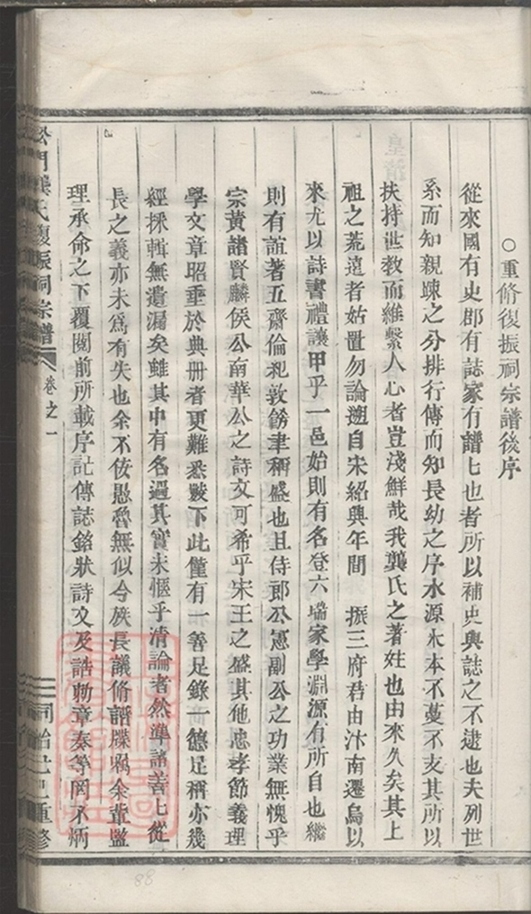 ○重修復振祠宗譜後序
從來國有史郡有誌家有譜譜也者所以補史與誌之不逮也夫列世
系而知親踈之分排行傳而知長幼之序水源木本不蔓不支其所以
扶持世教而維繫人心者豈淺鮮哉我龔氏之著姓也由來久矣其上
祖之荒遠者姑置勿論遡自宋紹興年間 振三府君由汴南遷烏以
來尤以詩書禮讓甲乎一邑始則有名登六場家學淵源有所自也繼
則有誼著五齋倫祀敦餝聿稱盛也且侍郎公憲副公之功業無愧乎
宗黃諸賢麟侯公南華公之詩文可希乎宋王之盛其他忠孝節義理
學文章昭垂於典冊者更難悉數下此僅有一善足錄一德足稱亦幾
經採輯無遺漏矣雖其中有名過其實未愜乎清論者然準諸善善從
長之義亦未為有失也余不佞愚魯無似今族長議修譜牒囑余董監
理承命之下覆閱前所載序記傳誌銘狀詩文及誥勅章奏等罔不炳
龔氏復振祠宗譜
卷之一
同治己巳重修
88